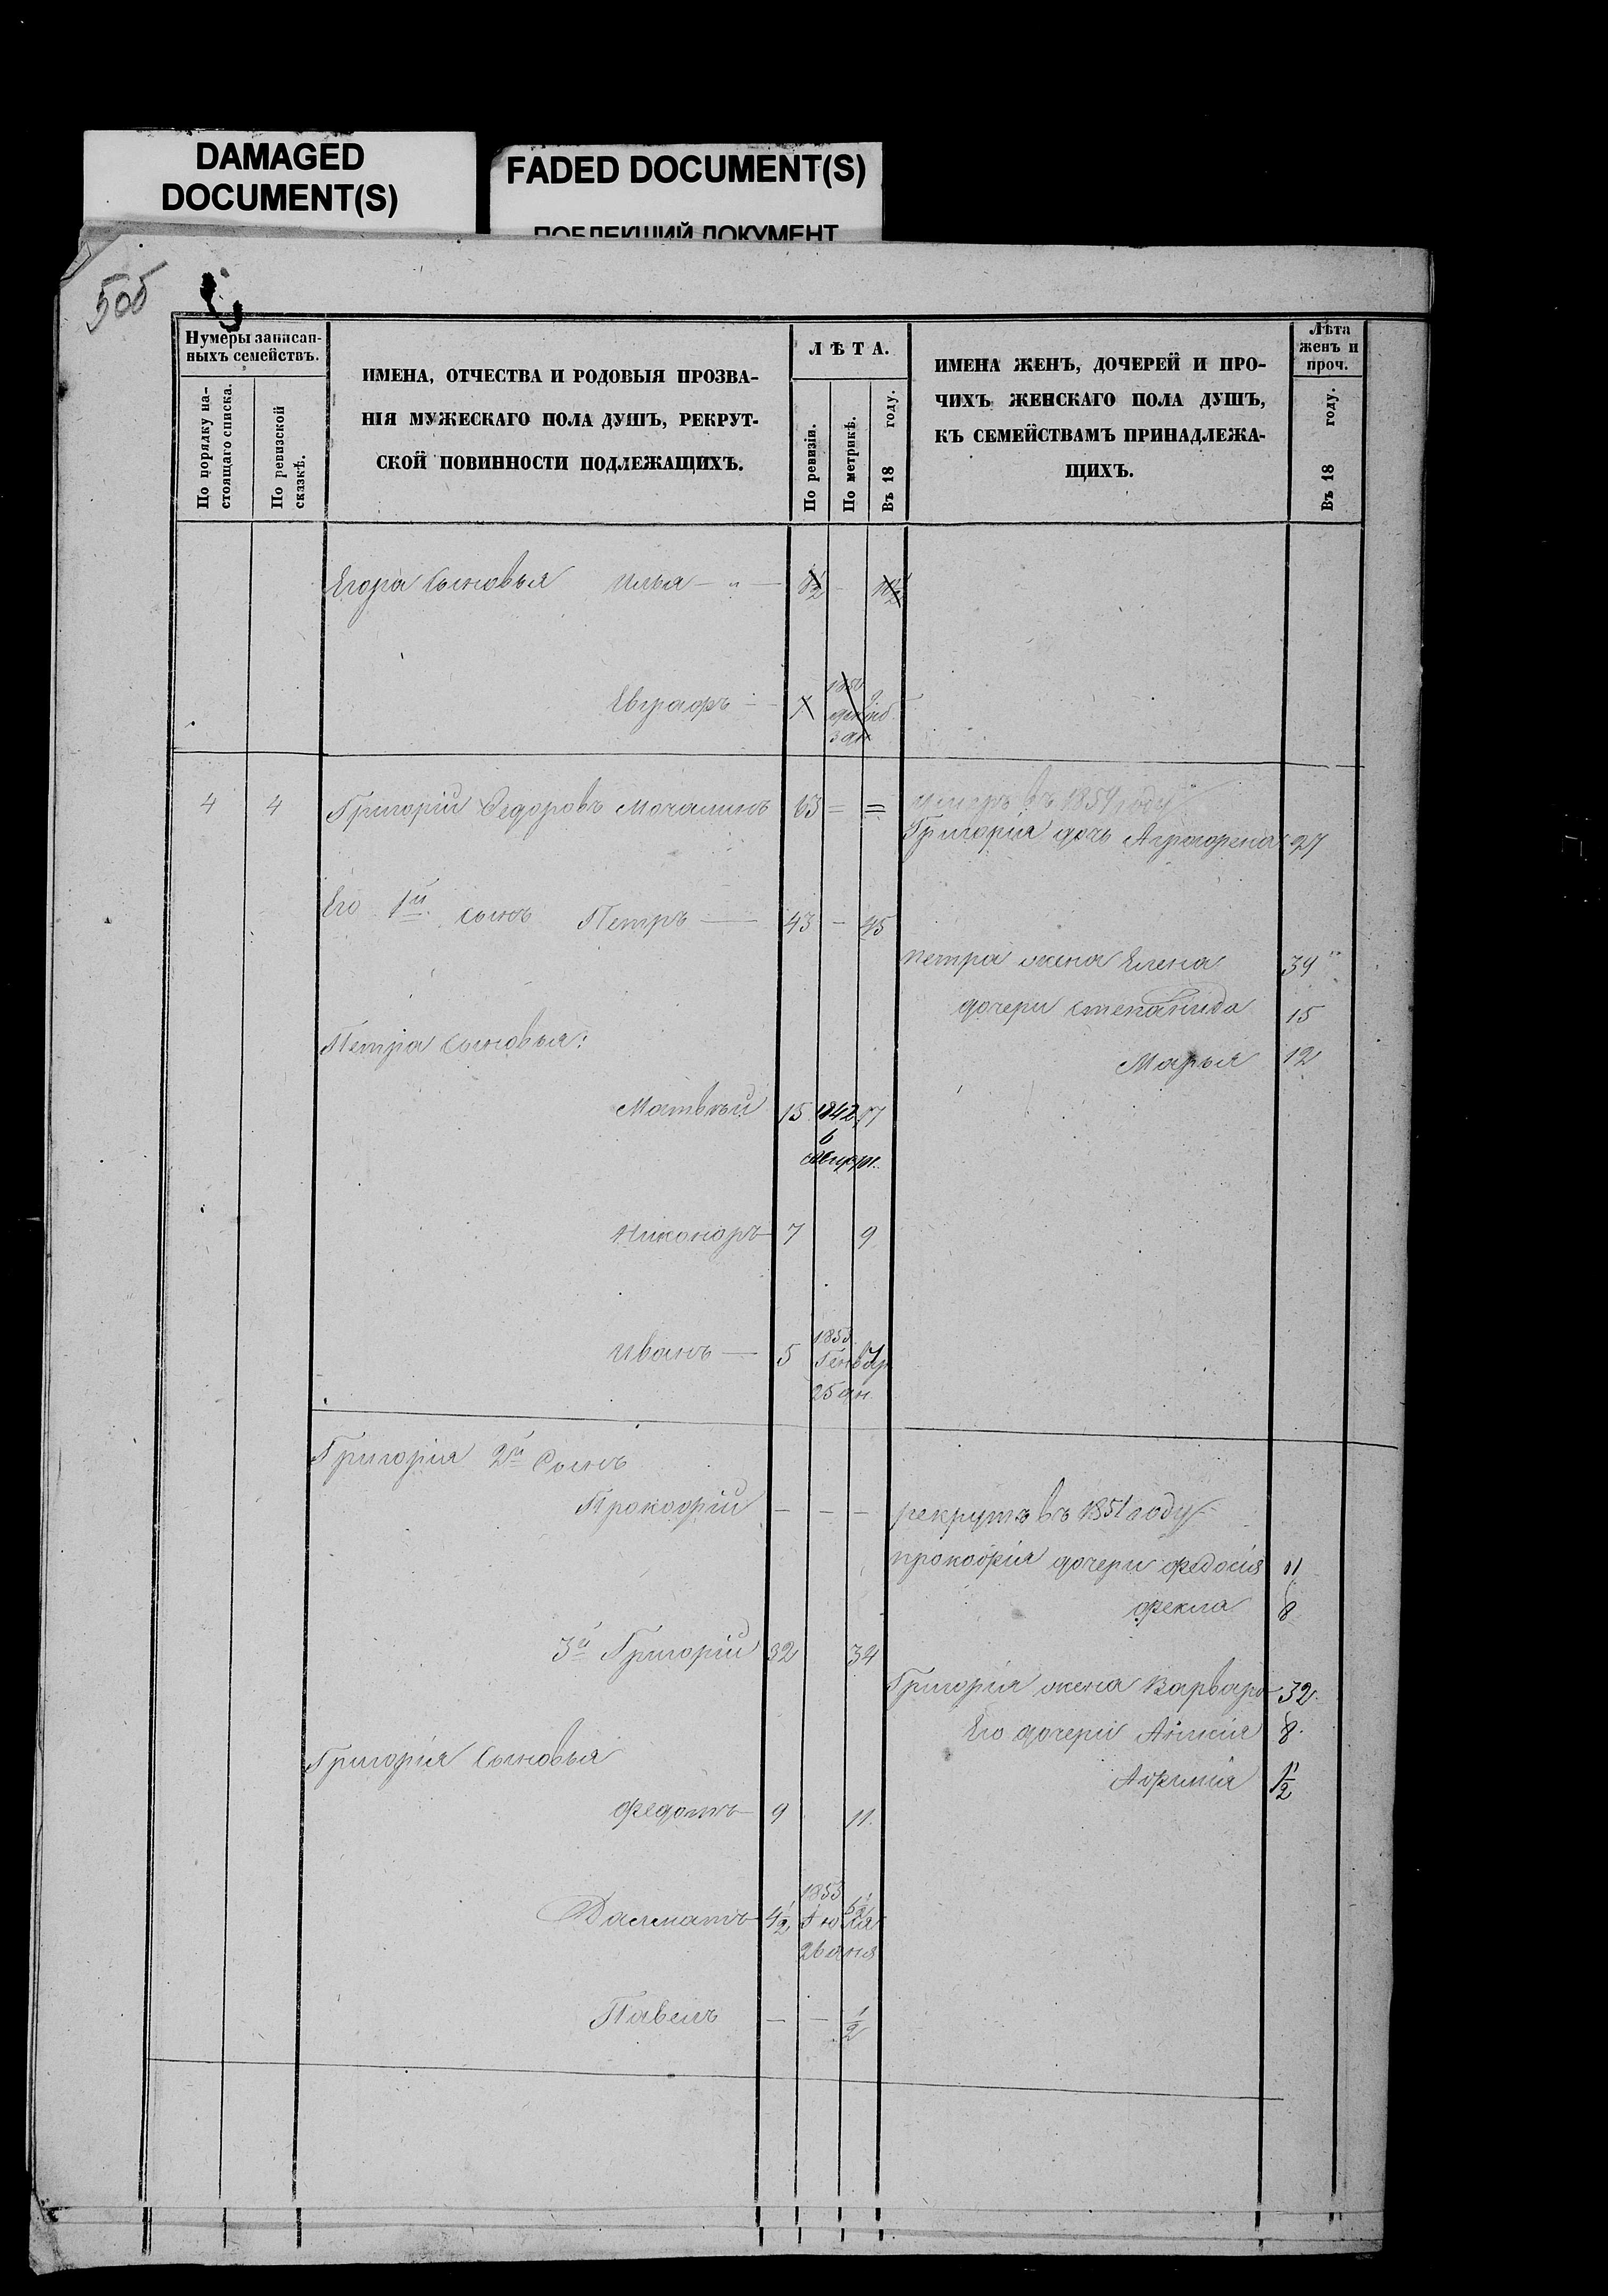 DAMAGED
DOCUMENT(S)
FADED DOCUMENT(S)
ПОБЛЕКШИЙ ДОКУМЕНТ
505
Нумеры записан-
ныхъ семействъ.
По порядку на-
стоящаго списка.
По ревизской
сказкѣ.
ИМЕНА, ОТЧЕСТВА И РОДОВЫЯ ПРОЗВА-
НІЯ МУЖЕСКАГО ПОЛА ДУШЪ, РЕКРУТ-
СКОЙ ПОВИННОСТИ ПОДЛЕЖАЩИХЪ.
ЛѢТА.
По ревизіи.
По метрикѣ.
Въ 18 году.
ИМЕНА ЖЕНЪ, ДОЧЕРЕЙ И ПРО-
ЧИХЪ ЖЕНСКАГО ПОЛА ДУШЪ,
КЪ СЕМЕЙСТВАМЪ ПРИНАДЛЕЖА-
ЩИХЪ.
Лѣта
женъ и
проч.
Въ 18 году.
Егора сыновья Илья — " —
Евграфъ —
4 4 Григорій Федоровъ Мочалинъ 63 = = въ 1859 году
Григорія дочь Аграфена 27
Его 1й сынъ Петръ — 43 — 45
Петра жена Елена 39
дочери Степанида 15
Петра сыновья:
Марья 12
Матвѣй 15 1842 17
6
Никоноръ 7 9
Иванъ — 5 1853 7
Генвар
25 дн.
Григорія 2й сынъ
Прокофій — — — рекрутъ въ 1851 году
Прокофія дочери Федосія 11
Фекла 8
3й Григорій 32 34
Григорія жена Варвара 32
Его дочери 8
Григорія сыновья
Афимія 1½
Федотъ 9 11
Далматъ 4½ 1853 6½
Іюля
26 дня
Павелъ — — ½